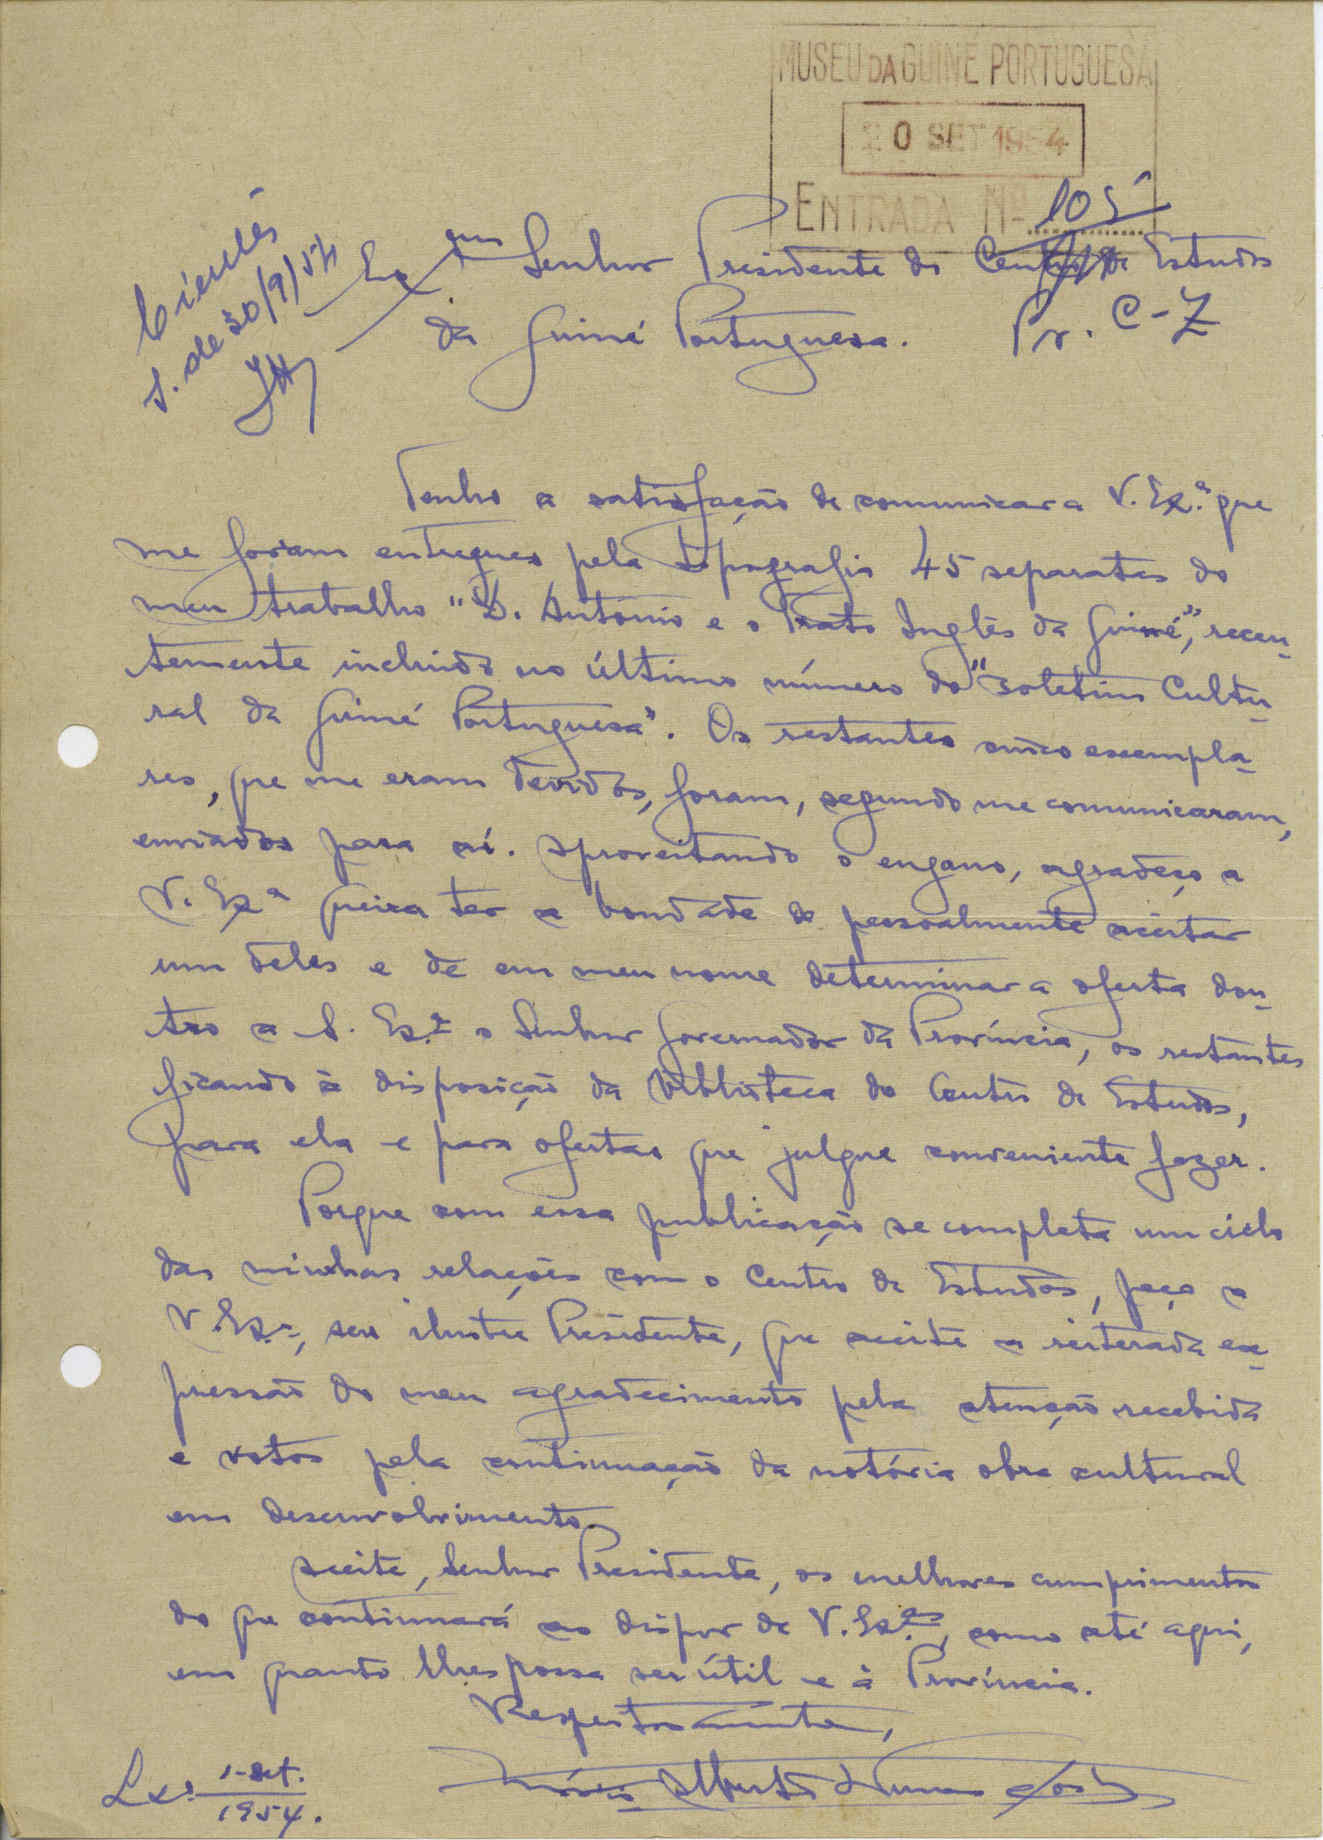 MUSEU DA GUINÉ PORTUGUESA
20 SET 1954
ENTRADA Nº 105
Cientes
S. de 30/9/54
Exmo Senhor Presidente do Centro de Estudos
da Guiné Portuguesa. Pr. C-Z
Tenho a satisfação de comunicar a V. Ex.ª que
me foram entregues pela tipografia 45 separatas do
meu trabalho "D. António e o Trato Inglês da Guiné", recen-
temente incluido no último número do "Boletim Cultu-
ral da Guiné Portuguesa". Os restantes cinco exempla-
res, que me eram devidos, foram, segundo me comunicaram,
enviados para aí. Aproveitando o engano, agradeço a
V. Exª queira ter a bondade de pessoalmente aceitar
um deles e de em meu nome determinar a oferta dou-
tro a S. Ex.ª o Senhor Governador da Província, os restantes
ficando à disposição da biblioteca do Centro de Estudos,
para ela e para ofertas que julgue conveniente fazer.
Porque com essa publicação se completa um ciclo
das minhas relações com o Centro de Estudos, peço a
V. Ex.ª, seu ilustre Presidente, que aceite a reiterada ex-
pressão do meu agradecimento pela atenção recebida
e votos pela continuação da notória obra cultural
em desenvolvimento.
Aceite, Senhor Presidente, os melhores cumprimentos
do que continuará ao dispor de V. Ex.as, como até aqui,
em quanto lhes possa ser útil e à Província.
Respeitosamente,
Lx.ª 1-Set.
1954.
Mário Alberto Nunes Costa